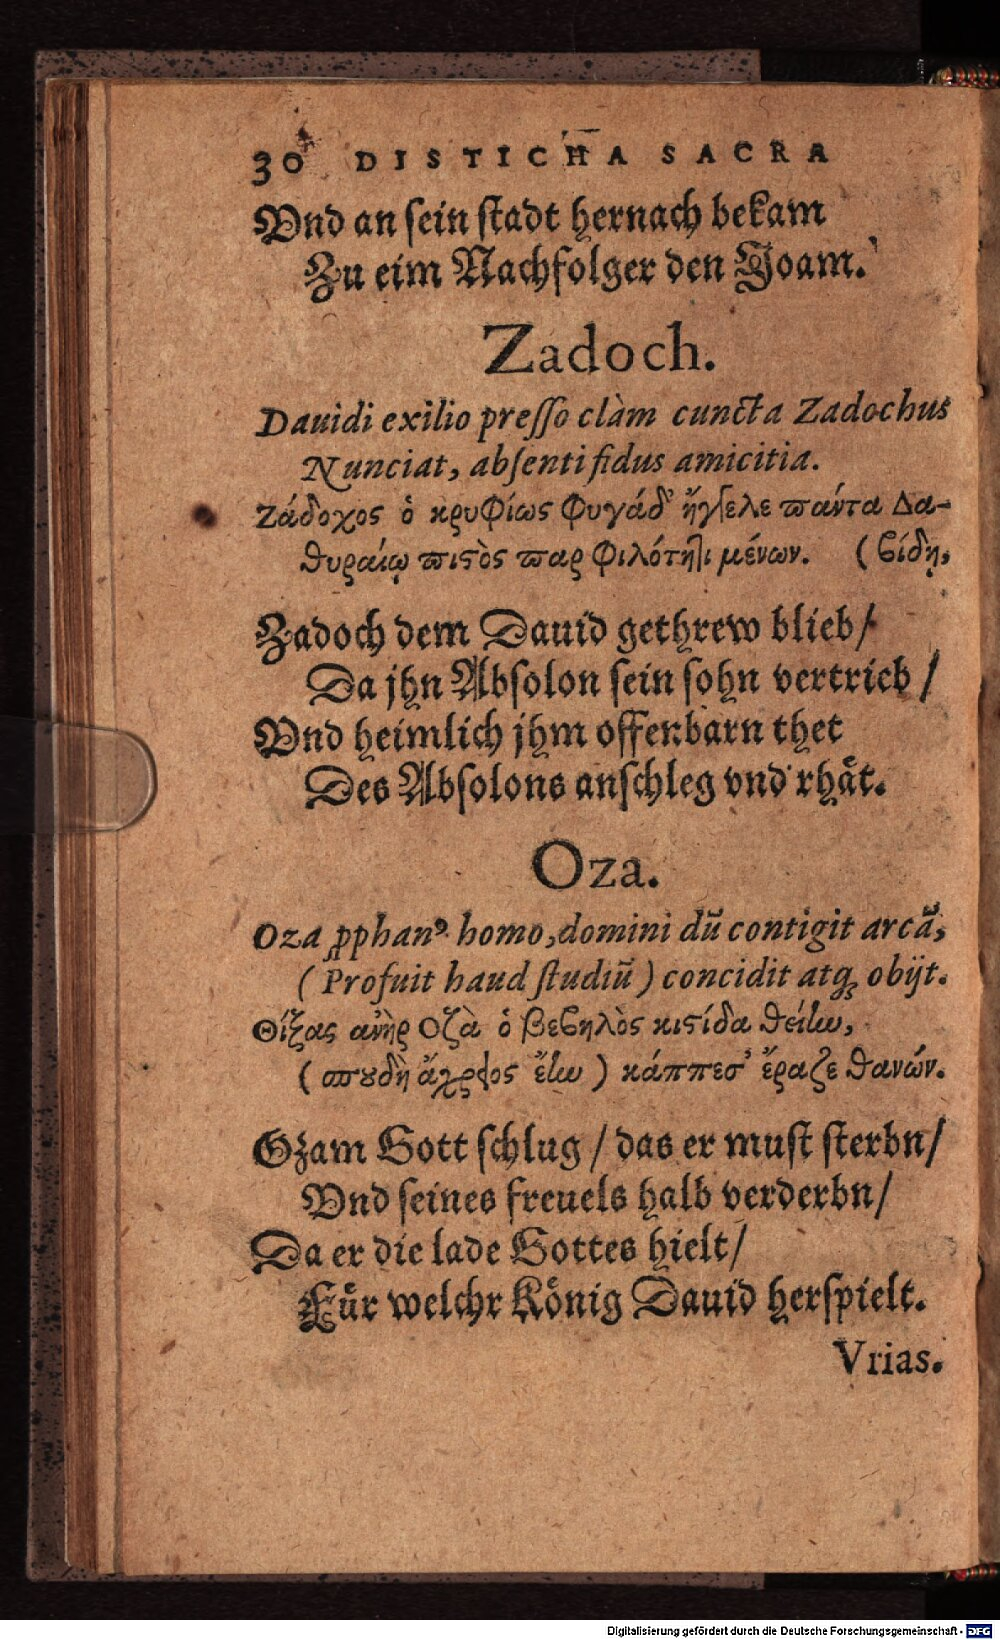 30 DISTICHA SACRA
Vnd an sein stadt hernach bekam
Zu eim Nachfolger den Joam.
Zadoch.
Dauidi exilio presso clàm cuncta Zadochus
Nunciat, absenti fidus amicitia.
Ζάδοχος ὁ κρυφίως φυγάδ' ἤγγελε πάντα Δα-
θυραίῳ πιστὸς παρ φιλότητι μένων. (βίδῃ,
Zadoch dem Dauid gethrew blieb/
Da jhn Absolon sein sohn vertrieb/
Vnd heimlich jhm offenbarn thet
Des Absolons anschleg vnd rhåt.
Oza.
Oza ꝓphanꝰ homo, domini dū contigit arcā,
(Profuit haud studiū) concidit atq; obijt.
Θίξας ἀνὴρ Οζὰ ὁ βεβηλὸς κιστίδα θείην,
(σπουδὴ ἄχρηστος ἔην) κάππεσ' ἔραζε θανών.
Ozam Gott schlug/ das er must sterbn/
Vnd seines freuels halb verderbn/
Da er die lade Gottes hielt/
Für welchr König Dauid herspielt.
Vrias.
Digitalisierung gefördert durch die Deutsche Forschungsgemeinschaft - DFG